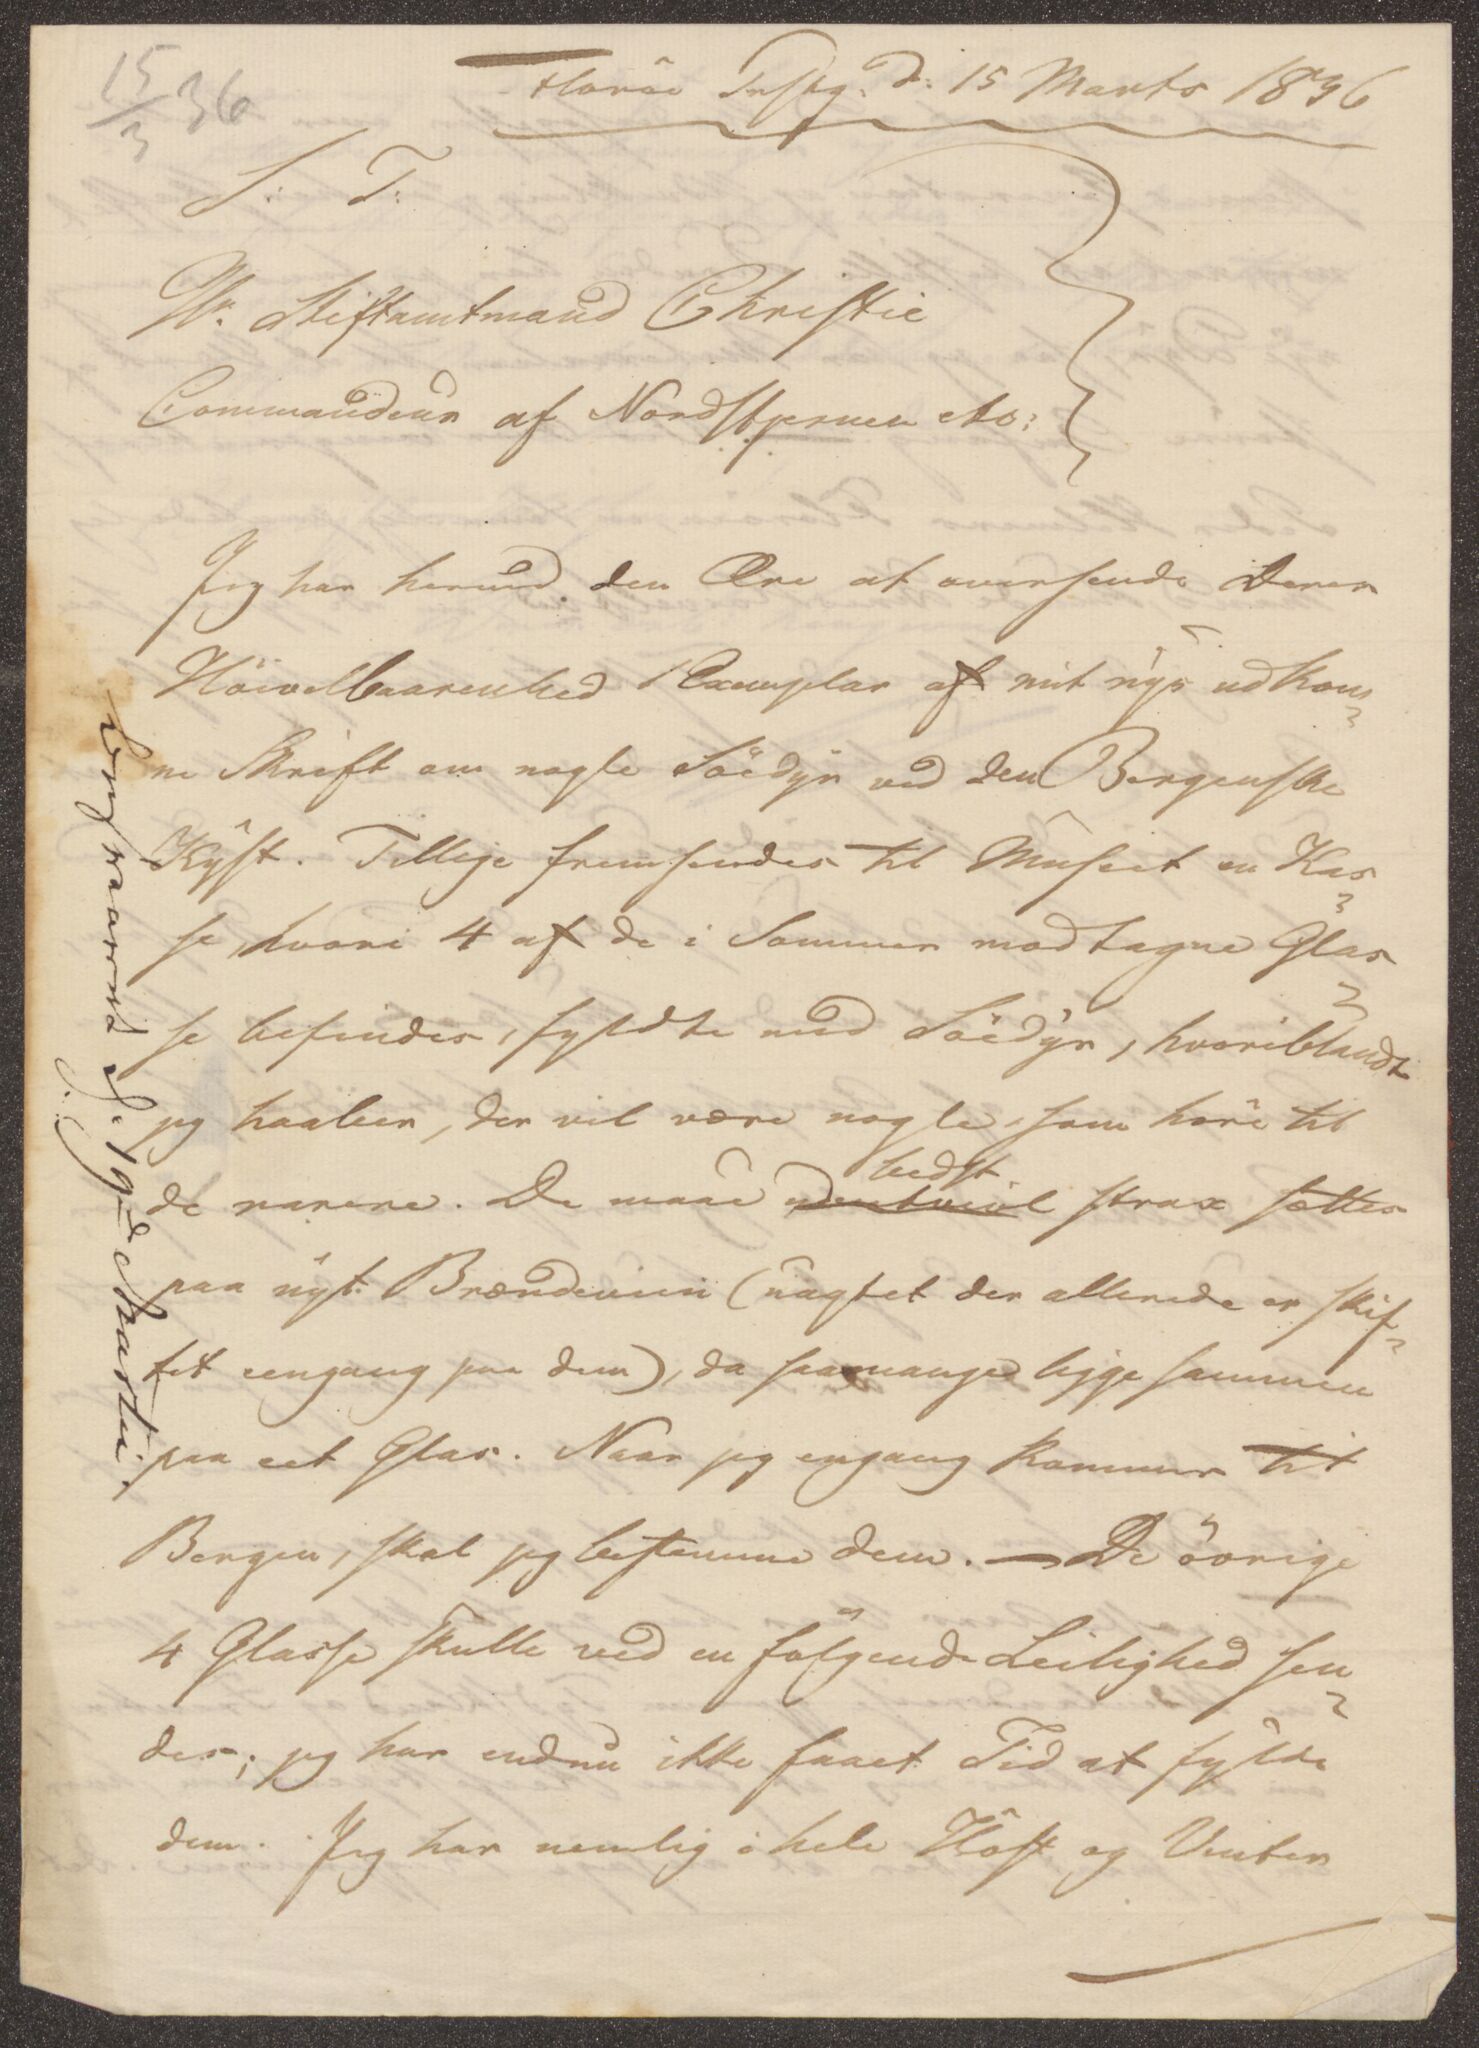 15/3 36
Florøe Prstg. d: 15 Marts 1836
S: T:
Hr. Stiftamtmand Christie
Commandeur af Nordstjernen etc:
Jeg har herved den Ære at oversende Deres
Höivelbaarenhed 1 Exemplar af mit nys udkom-
ne Skrift om nogle Söedÿr ved den Bergenske
Kÿst. Tillige fremsendes til Museet en Kas-
se, hvori 4 af de i Sommer modtagne Glas-
se befindes, fyldte med Söedÿr, hvoriblandt
jeg haaber, der vil være nogle, som höre til
de rarere. De maae udentvivl bedst strax sættes
paa nÿt Brændeviin (uagtet der allerede er skif-
tet eengang paa dem), da saamange ligge sammen
paa eet Glas. Naar jeg engang kommer til
Bergen, skal jeg bestemme dem. — De övrige
4 Glasse skulle ved en fölgende Leilighed sen-
des; jeg har endnu ikke faaet Tid at fylde
dem. Jeg har nemlig i hele Höst og Vinter
besvaret d. 19de Martii.